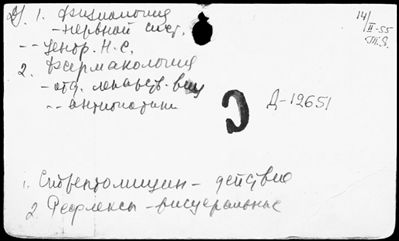 1. Физиология
- нервной сист.
-- Центр. Н.С.
2. Фармакология
- отд. лекарств. вещ
-- антибиотики
14/II-55
Д-12651
1. Стрептомицин - действие
2 Рефлексы - висцеральные